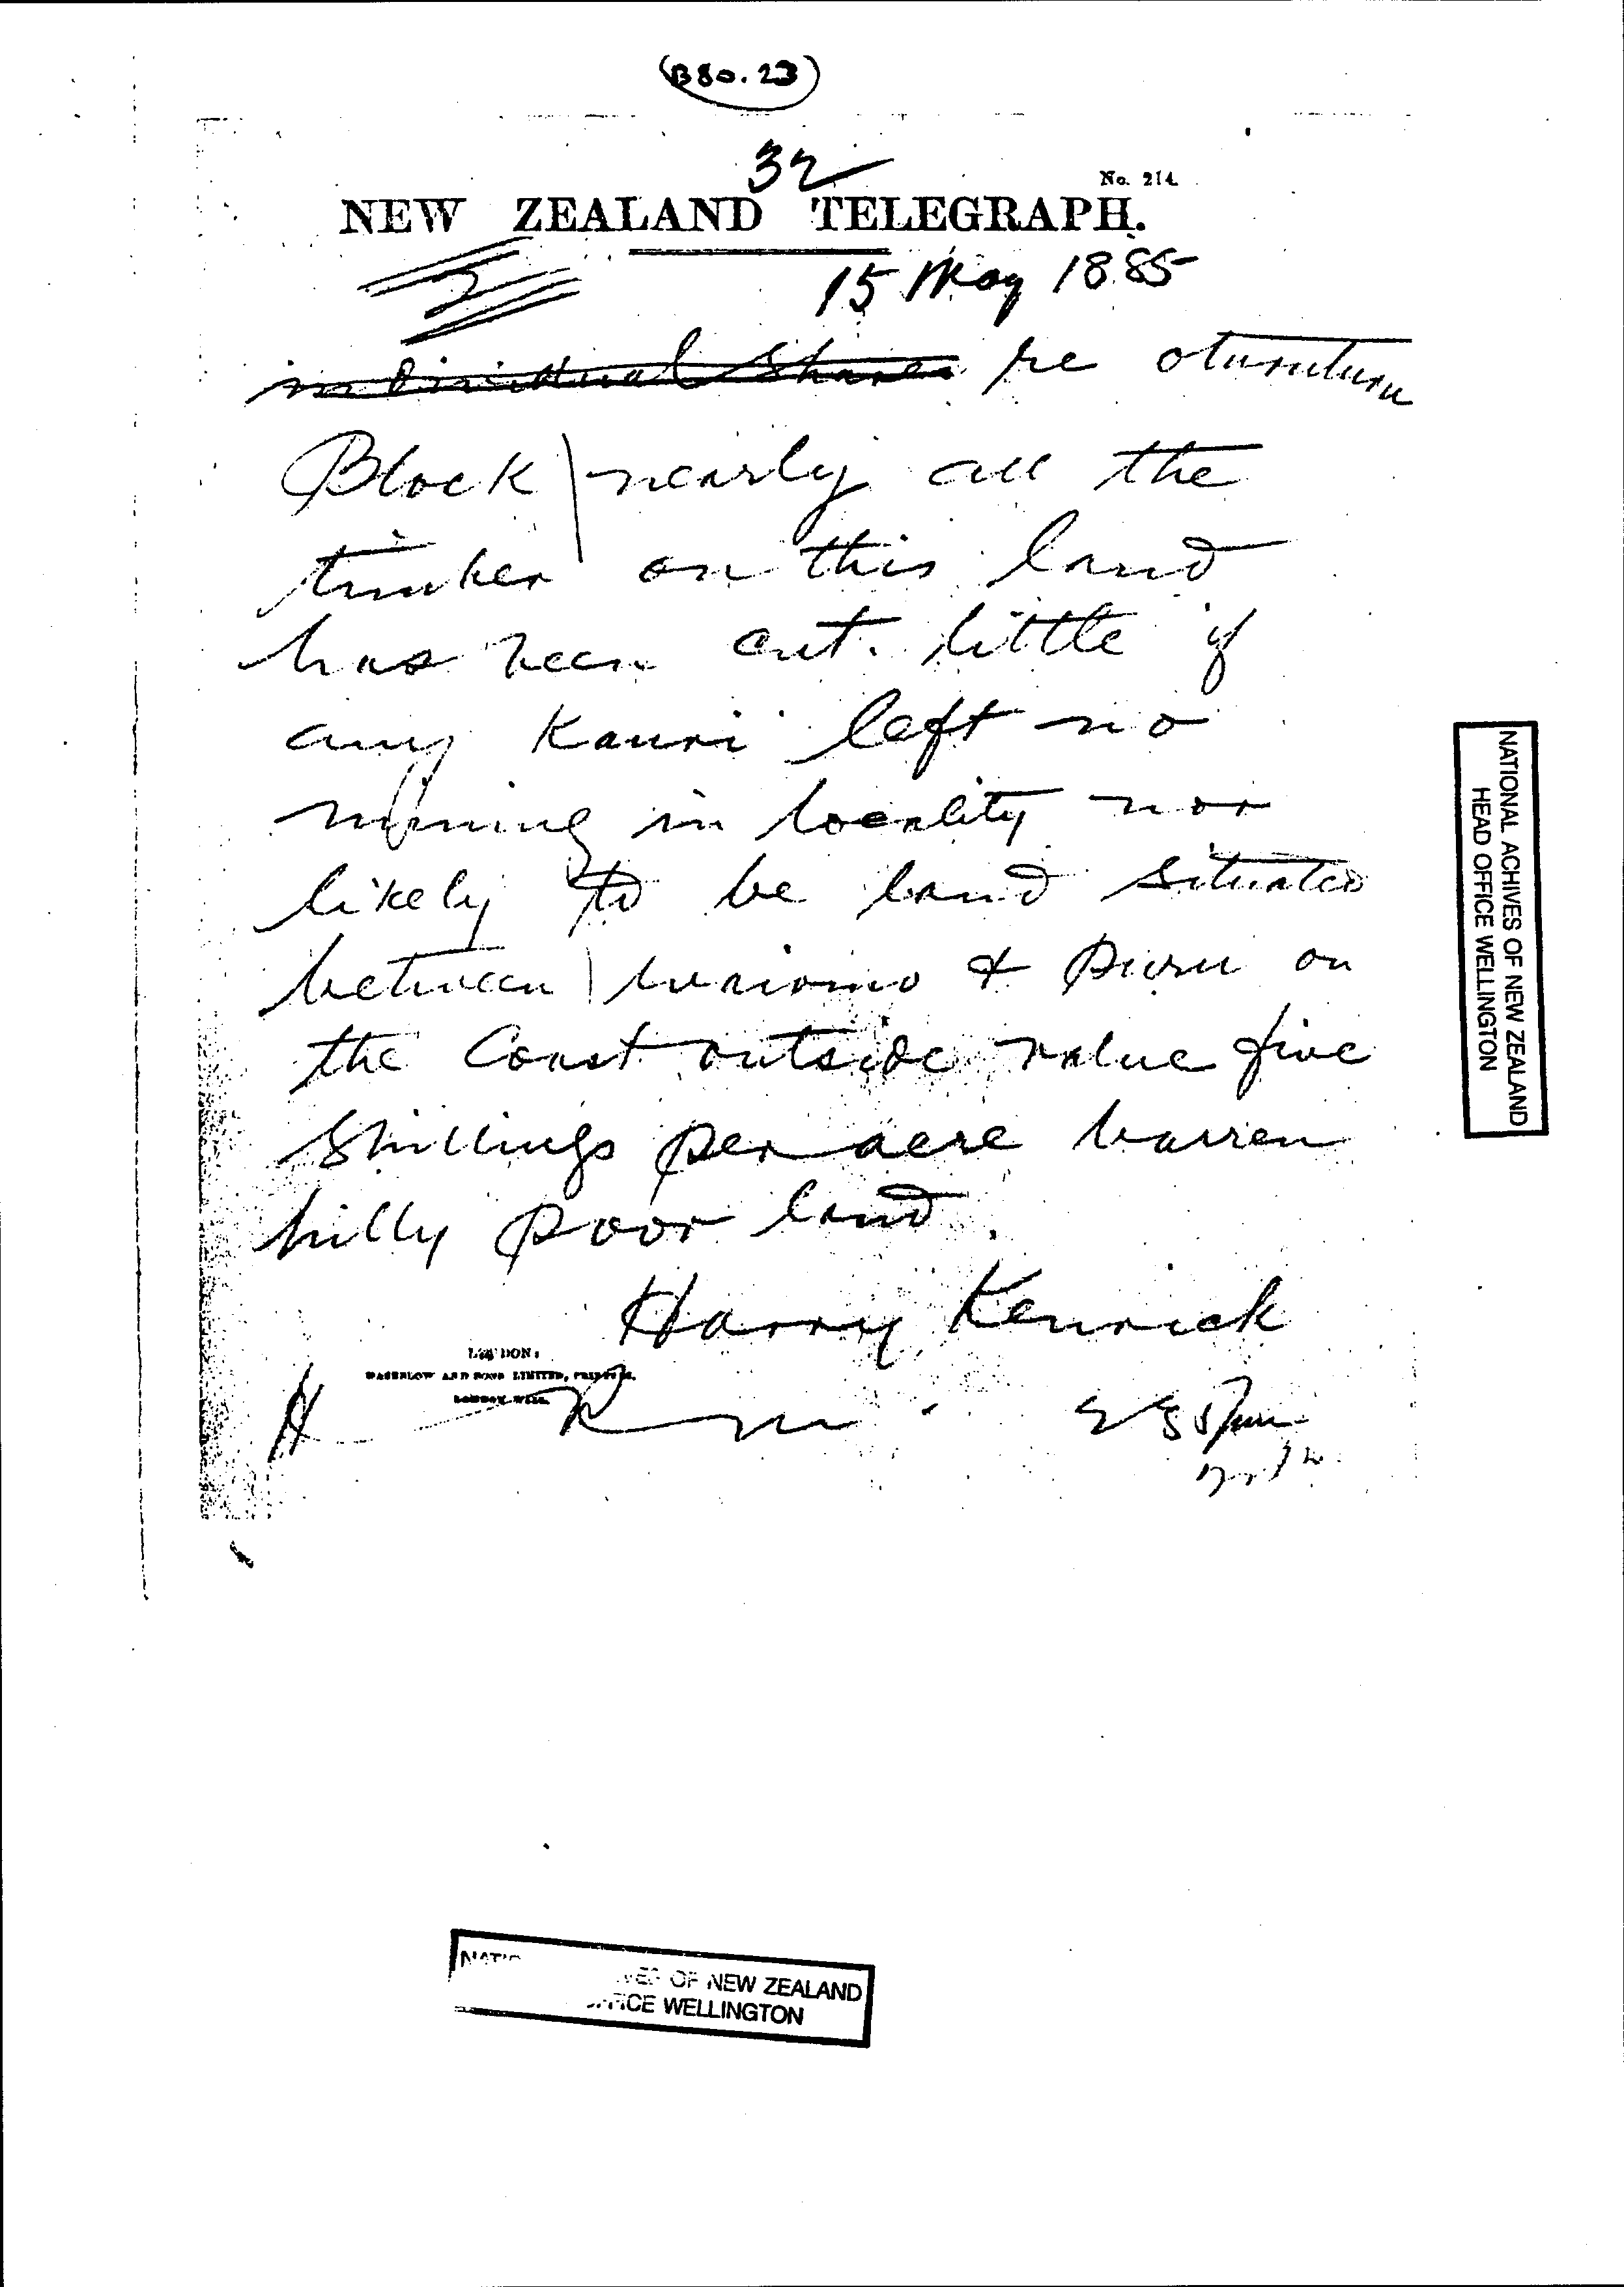 (B80.23)
32
No. 214
NEW ZEALAND TELEGRAPH.
2
15 May 1885
individual Shares re oturuturu
Block nearly all the
timber on this land
has been cut. little if
any Kauri left no
mining in locality nor
likely to be land situated
between & Puru on
the Coast outside value five
Shillings per acre barren
hilly poor land.
Harry Kenrick
LONDON:
WATERLOW AND SONS LIMITED, PRINTERS,
LONDON WALL.
NATIONAL ACHIVES OF NEW ZEALAND
HEAD OFFICE WELLINGTON
OF NEW ZEALAND
WELLINGTON